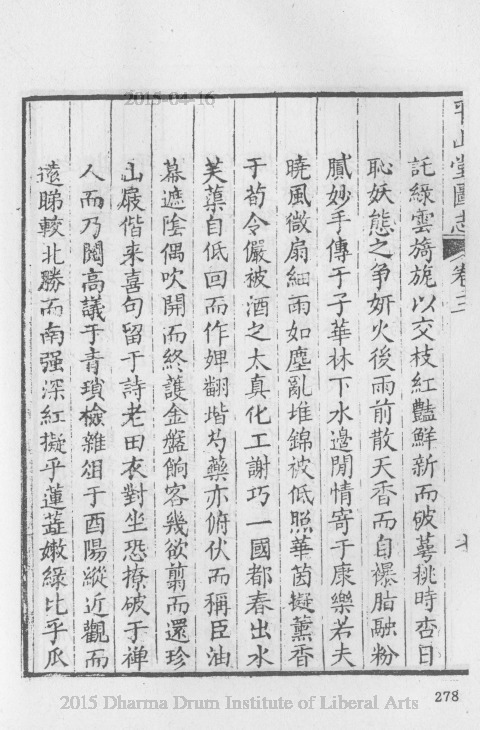 2015-04-16
平山堂圖志
卷三
七
託綠雲旖旎以交枝紅豔鮮新而破萼桃時杏日
恥妖態之争妍火後雨前散天香而自襮脂融粉
膩妙手傳于子華林下水邊閒情寄于康樂若夫
曉風微扇細雨如塵亂堆錦被低照華茵擬薰香
于荀令儼被酒之太真化工謝巧一國都春出水
芙蕖自低回而作婢翻堦芍藥亦俯伏而稱臣油
幕遮陰偶吹開而終護金盤餉客幾欲翦而還珍
山屐偕来喜句留于詩老田衣對坐恐撩破于禅
人而乃閱高議于青瑣檢雜俎于酉陽縱近觀而
遠睇較北勝而南强深紅擬乎蓮蘂嫩綠比乎瓜
2015 Dharma Drum Institute of Liberal Arts
278